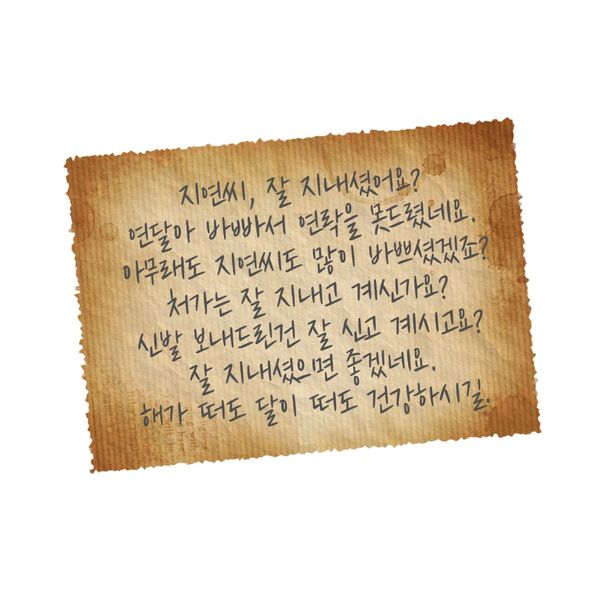 지연씨, 잘 지내셨어요?
연달아 바빠서 연락을 못드렸네요.
아무래도 지연씨도 많이 바쁘셨겠죠?
처가는 잘 지내고 계신가요?
신발 보내드린건 잘 신고 계시고요?
잘 지내셨으면 좋겠네요.
해가 떠도 달이 떠도 건강하시길.